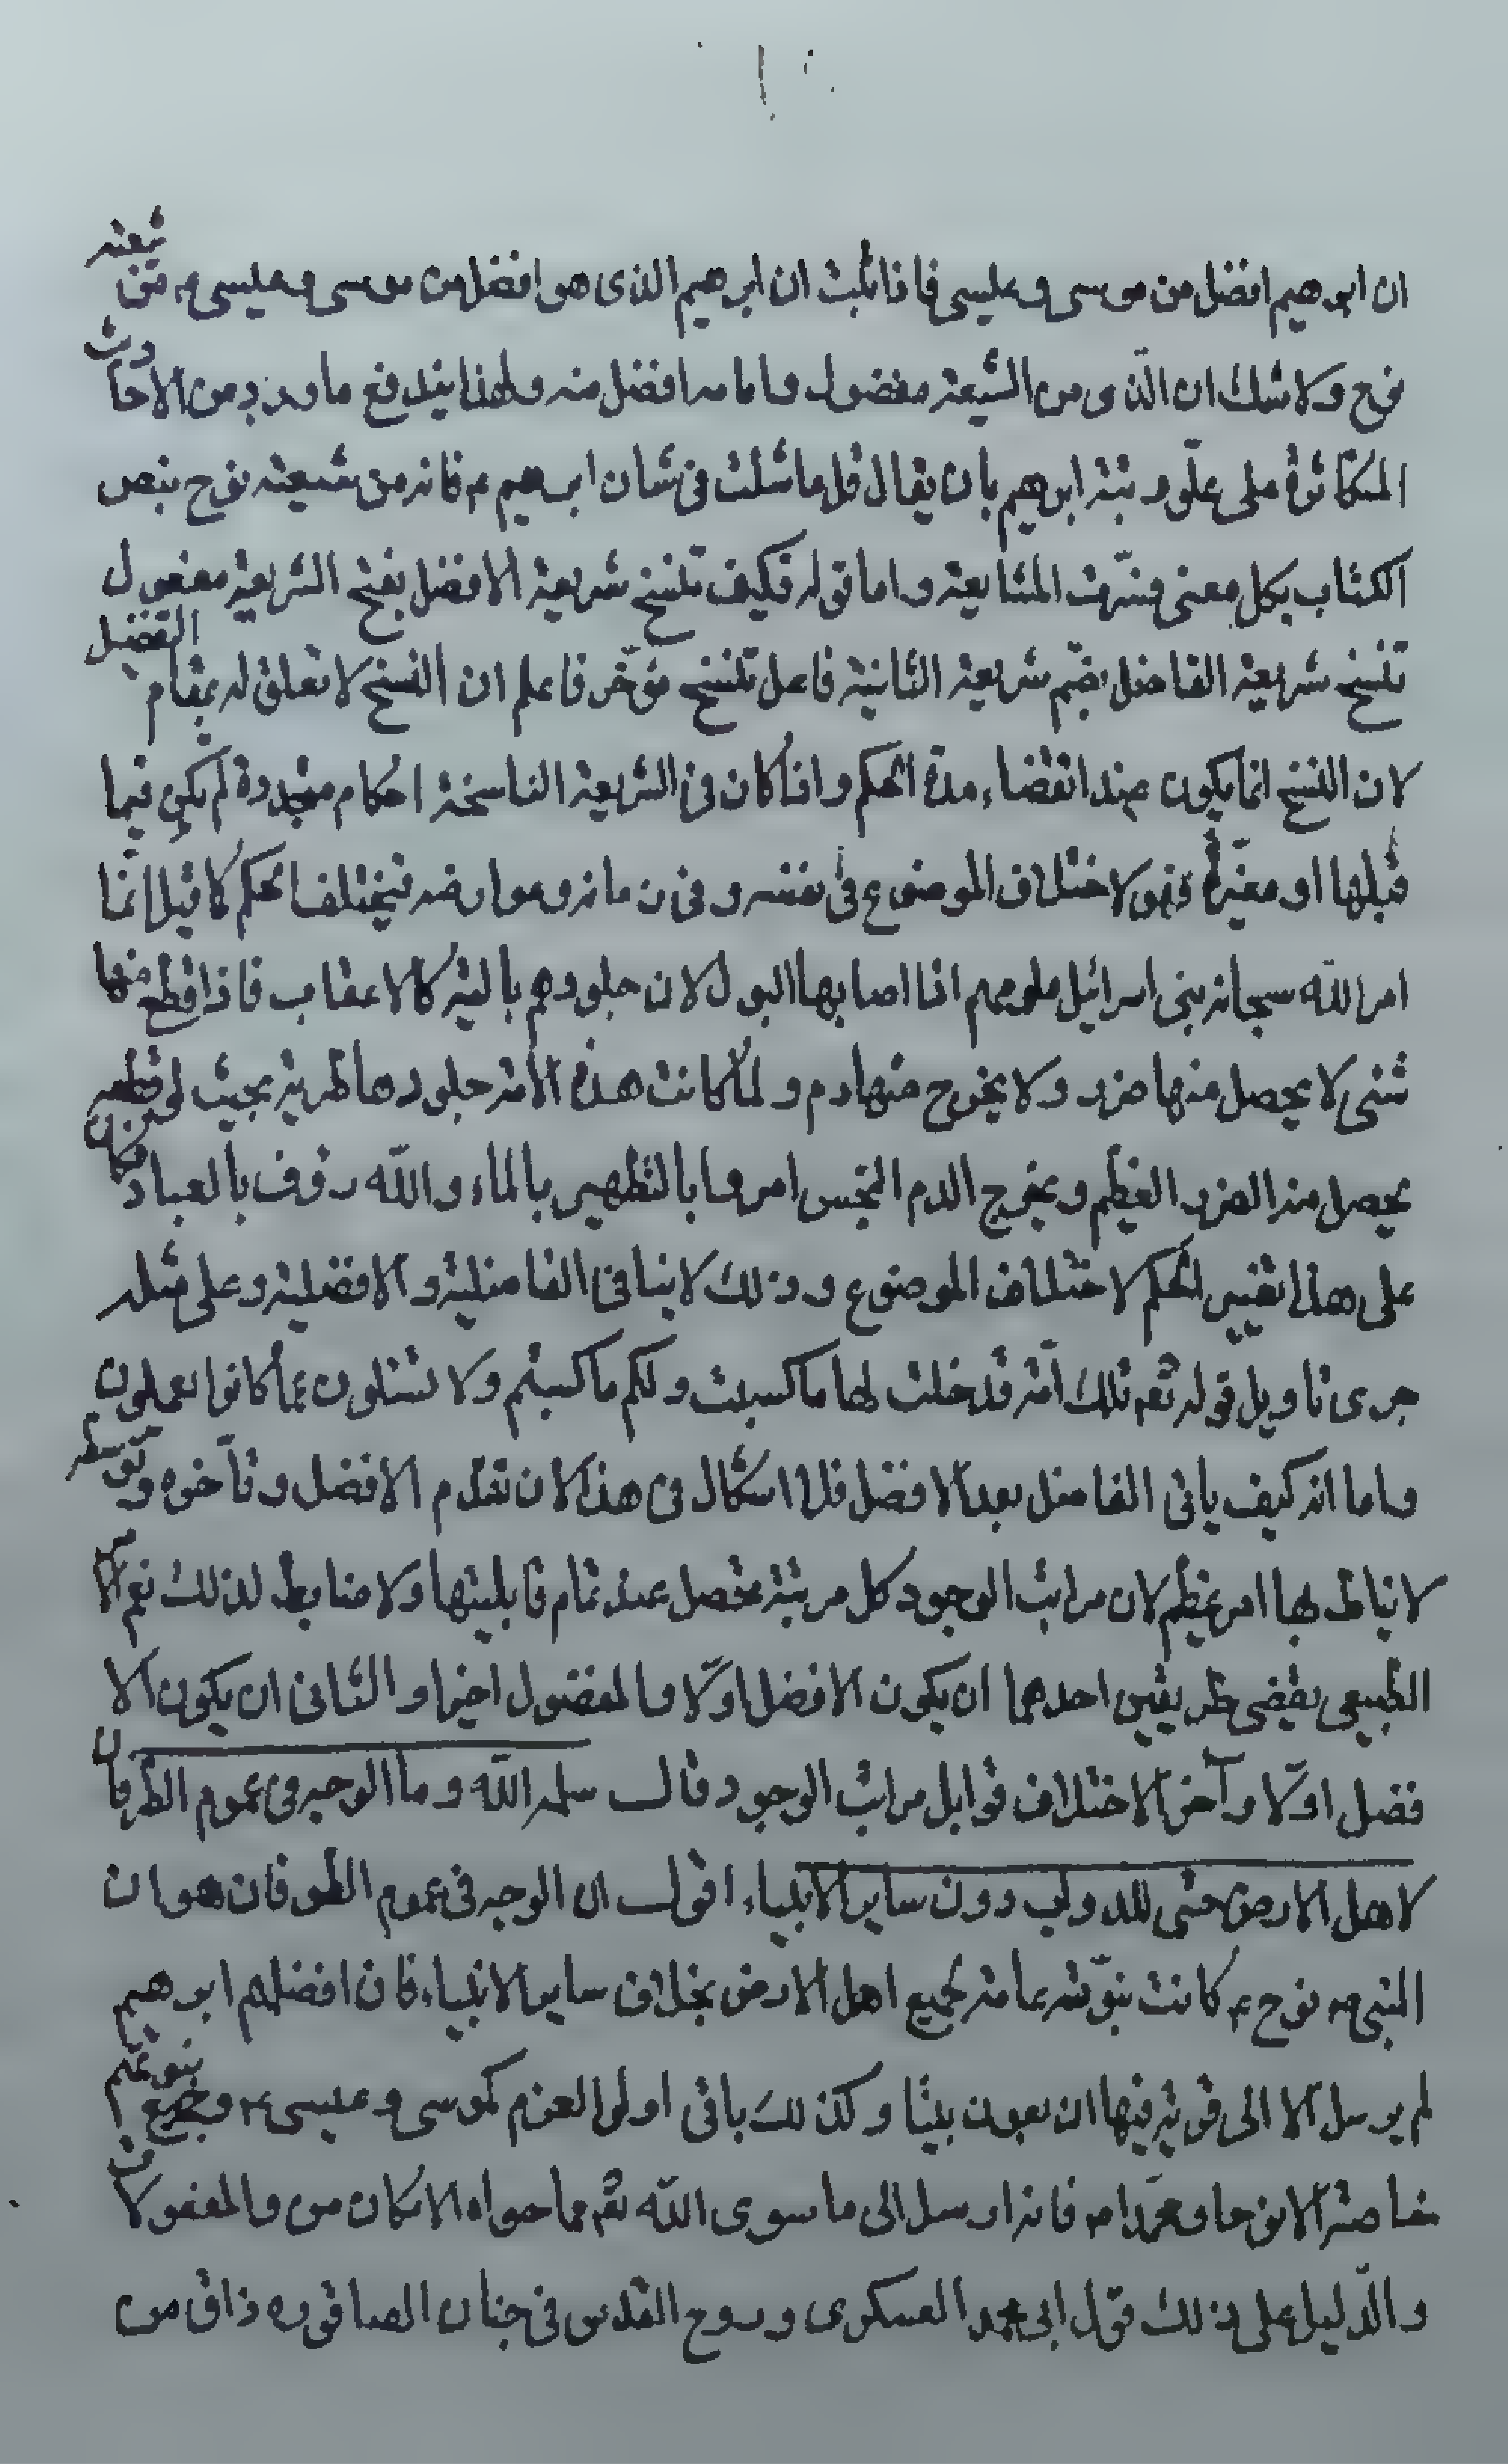 ان ابرهيم افضل من موسى وعيسى فاذا ثبت ان ابرهيم الذى هو افضل من موسى وعيسى ع من شيعته
نوح ولا شك ان الذى من الشيعة مفضول وامامه افضل منه ولهذا يندفع ما ورد من الاحاديث
المتكاثرة على علو رتبة ابرهيم بان يقال قل ما شئت فى شان ابرهيم ع فانه من شيعة نوح بنص
الكتاب بكل معنى فسرت المشايعة واما قوله فكيف تنسخ شريعة الافضل بفتح الشريعة مفعول
تنسخ شريعة الفاضل بضم شريعة الثانية فاعل تنسخ مؤخر فاعلم ان النسخ لا تعلق له بمقام التفضيل
لان النسخ انما يكون عند انقضاء مدة الحكم واذا كان فى الشريعة الناسخة احكام متجددة لم تكن فيما
قبلها او مغيرة فهو لاختلاف الموضوع فى نفسه وفى زمانه وعوارضه فيختلف الحكم كما قيل انما
امر الله سبحانه بنى اسرائيل ملومهم اذا اصابها البول لان جلودهم يابسة كالاعقاب فاذا قطع منها
شئ لا يحصل منها ضرر ولا يخرج منها دم ولما كانت هذه الامة جلودها طرية بحيث لو قطعه كان
يحصل منه الضرر العظيم ويخرج الدم النجس امروا بالتطهير بالماء والله رؤف بالعباد فكان
على هذا تغيير الحكم لاختلاف الموضوع وذلك لا ينافى الفاضلية والافضلية وعلى مثله
جرى تاويل قوله تعم تلك امة قد خلت لها ما كسبت ولكم ما كسبتم ولا تسئلون عما كانوا يعملون
واما انه كيف ياتى الفاضل بعد الافضل فلا اشكال فى هذا لان تقدم الافضل وتأخره وتوسطه
لا يناط بها امر عظيم لان مراتب الوجود كل مرتبة تحصل عند تمام قابليتها ولا ضابط لذلك نعم الامر
الطبيعى يقتضى طريقين احدهما ان يكون الافضل اولا والمفضول اخيرا والثانى ان يكون الا
فضل اولا وآخرا لاختلاف قوابل مراتب الوجود قال سلمه الله وما الوجه فى عموم الطوفان
لاهل الارض حتى للدواب دون ساير الانبياء اقول ان الوجه فى عموم الطوفان هو ان
النبى نوح ع كانت نبوته عامة لجميع اهل الارض بخلاف ساير الانبياء فان افضلهم ابرهيم
لم يرسل الا الى قرية فيها اربعون بيتا وكذلك باقى اولوا العزم كموسى وعيسى ع وجميع نبوتهم
خاصة الا نوحا ومحمدا ص فانه ارسل الى ما سوى الله تعم مما حواه الامكان من والمعقولات
والدليل على ذلك قول ابى محمد العسكرى وروح القدس فى جنان الصاقوره ذاق من